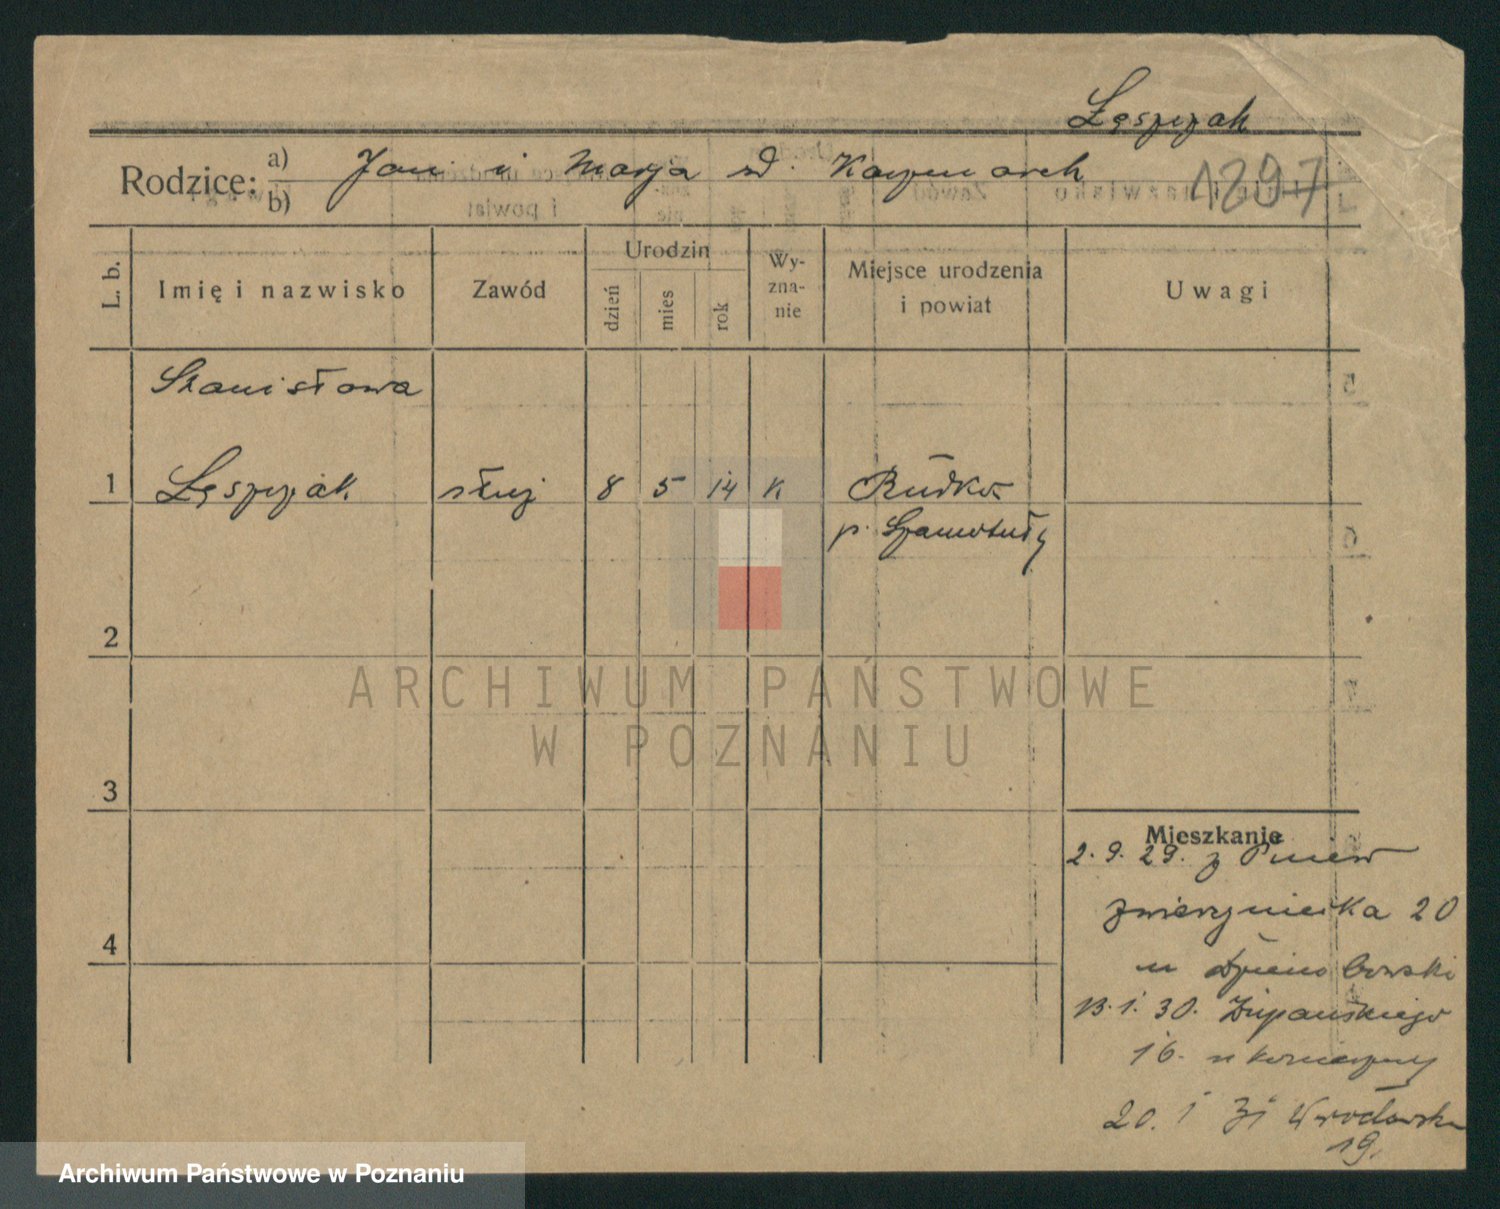 Lęszczak
Rodzice: a) Jan i Marja zd. Kaczmarek
b)
1297
L. b.
Imię i nazwisko
Zawód
Urodzin
dzień
mies
rok
Wy-
zna-
nie
Miejsce urodzenia
i powiat
Uwagi
Stanisława
1 Lęszczak służ 8 5 14 K Rudki
p. Szamotuły
2
3
4
Mieszkanie
2.9.29. z Pniew
Zwierzyniecka 20
u
13.1.30. Żupańskiego
16. u
20. 1 31 Wrocławska
19.
ARCHIWUM PAŃSTWOWE
W POZNANIU
Archiwum Państwowe w Poznaniu